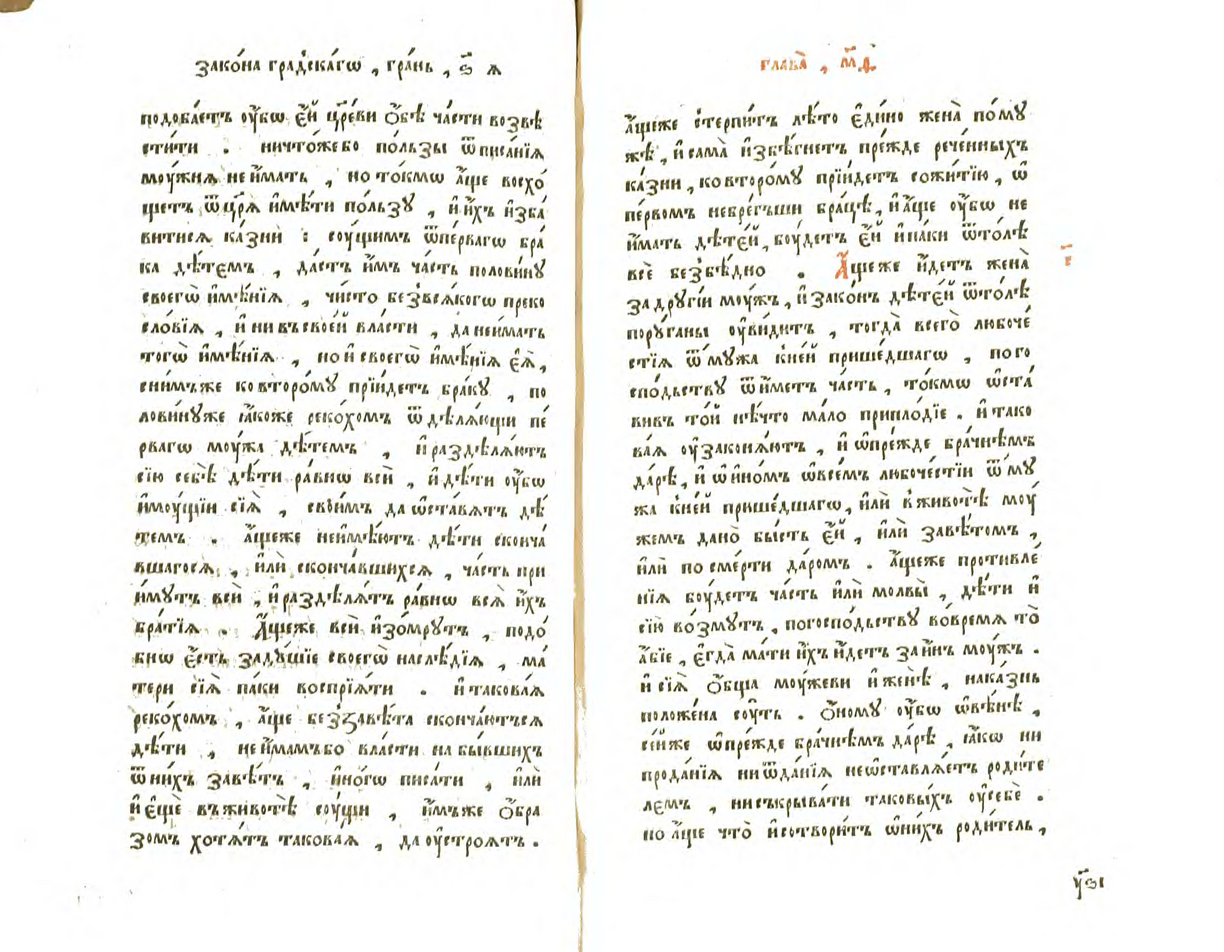 зако́на гра́дскагѡ , гра́нь , ѕ҃ ꙗ
подоба́етъ ᲂу҆́бѡ є҆́й цр҃еви ѻ҆́бѣ ча́сти возвѣ
сти́ти . ничто́жебо по́льзы ѿписа́нїѧ
моу́жнѧ не и҆́мать , но то́кмѡ а҆́ще восхо́
щетъ ѿцр҃ѧ и҆мѣ́ти по́льзу , и҆ и҆́хъ и҆зба́
витисѧ ка́зни : соу́щимъ ѿпе́рвагѡ бра́
ка дѣ́темъ , да́стъ и҆̀мъ ча́сть полови́ну
своегѡ̀ и҆мѣ́нїѧ , чи́сто безвсѧ́когѡ преко
сло́вїѧ , и҆ ни въ свое́й вла́сти , да не и҆́мать
тогѡ̀ и҆мѣ́нїѧ , но и҆ своегѡ̀ и҆мѣ́нїѧ є҆ѧ̀ ,
сни́мъже ко второ́му прїи́детъ бра́ку , по
лови́нуже ꙗ҆́коже реко́хомъ ѿдѣлѧ́ющи пе́
рвагѡ моу́жа дѣ́темъ , и҆ раздѣлѧ́ютъ
сїю̀ себѣ̀ дѣ́ти ра́внѡ всѝ , и҆ дѣ́ти ᲂу҆́бѡ
и҆моу́щїи сїѧ̀ , свои́мъ да ѡ҆ста́вѧтъ дѣ́
темъ . а҆́щеже неи҆мѣ́ютъ дѣ́ти сконча́
вшагосѧ , и҆лѝ сконча́вшихсѧ , ча́сть прїи
и҆́мутъ всѝ , и҆ раздѣлѧ́тъ ра́внѡ всѧ̀ и҆́хъ
бра́тїѧ . А҆́щеже всѝ и҆зо́мрутъ , подо́
бнѡ є҆́сть заду́шїе своегѡ̀ наслѣ́дїѧ , ма́
тери сїѧ̀ па́ки воспрїѧ́ти . и҆ такова́ѧ
реко́хомъ , а҆́ще беззавѣ́та сконча́ютъсѧ
дѣ́ти , не и҆́мамъбо вла́сти на бы́вшихъ
ѿ ни́хъ завѣ́тъ , и҆́ногѡ писа́ти , и҆лѝ
и҆ є҆щѐ въ животѣ̀ соу́щи , и҆́мъже ѻ҆́бра
зомъ хотѧ́тъ такова́ѧ , да ᲂу҆строѧ́тъ .
глава̀ , м҃д
а҆́щеже стерпи́тъ лѣ́то є҆ди́но жена̀ по му́
жѣ , и҆ сама̀ и҆збѣ́гнетъ пре́жде рече́нныхъ
ка́зни , ко второ́му прїи́детъ сожи́тїю , ѡ҆
пе́рвомъ небре́гъши бра́цѣ , и҆ а҆́ще ᲂу҆́бѡ не
и҆́мать дѣте́й , боу́детъ є҆́й и҆ па́ки ѿто́лѣ
всѐ безбѣ́дно . А҆́щеже и҆́детъ жена̀
за други́и моу́жъ , и҆ зако́нъ дѣте́й ѿто́лѣ
пору́ганы ᲂу҆ви́дитъ , тогда̀ всего̀ любоче́
стїѧ ѿ му́жа к не́й прише́дшагѡ , по го
спо́дьству ѿи́метъ ча́сть , то́кмѡ ѡ҆ста́
вивъ то́й нѣ́что ма́ло припло́дїе . и҆ тако
ва́ѧ ᲂу҆законѧ́ютъ , и҆ ѡ҆ пре́жде бра́чнѣмъ
да́рѣ , и҆ ѡ҆ и҆но́мъ ѡ҆ все́мъ любоче́стїи ѿ му́
жа к не́й прише́дшагѡ , и҆лѝ в животѣ̀ моу́
жемъ дано̀ бы́сть є҆́й , и҆лѝ завѣ́томъ ,
и҆лѝ по сме́рти да́ромъ . а҆́щеже противле́
нїѧ боу́детъ ча́сть и҆лѝ молвы̀ , дѣ́ти и҆
сїю̀ во́змутъ , по госпо́дьству во́времѧ то̀
а҆́бїе , є҆гда̀ ма́ти и҆́хъ и҆́детъ за и҆́нъ моу́жъ .
и҆ сїѧ̀ ѻ҆́бща моу́жеви и҆ женѣ̀ , нака́знь
положе́на соу́ть . ѻ҆́ному ᲂу҆́бѡ ѡ҆ вѣ́нѣ ,
се́йже ѡ҆ пре́жде бра́чнѣмъ да́рѣ , ꙗ҆́кѡ ни
прода́нїѧ ни ѿда́нїѧ не ѡ҆ставлѧ́етъ роди́те
лемъ , ни съкрыва́ти таковы́хъ ᲂу҆ себѐ .
но а҆́ще что̀ и҆ сотвори́тъ ѡ҆ ни́хъ роди́тель ,
і҃
у҃зі